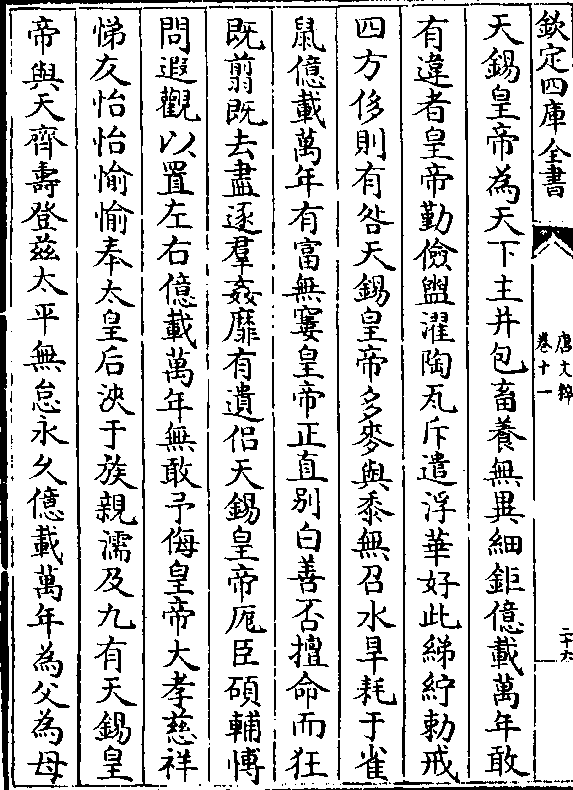 欽定四庫全書
唐文粹
卷十一
二十六
天錫皇帝為天下主并包畜養無異細鉅億載萬年敢
有違者皇帝勤儉盥濯陶瓦斥遣浮華好此綈紵勅戒
四方侈則有咎天錫皇帝多麥與黍無召水旱耗于雀
鼠億載萬年有富無窶皇帝正直别白善否擅命而狂
既翦既去盡逐羣姦靡有遺侣天錫皇帝厖臣碩輔博
問遐觀以置左右億載萬年無敢予侮皇帝大孝慈祥
悌友怡怡愉愉奉太皇后浹于族親濡及九有天錫皇
帝與天齊壽登兹太平無怠永久億載萬年為父為母